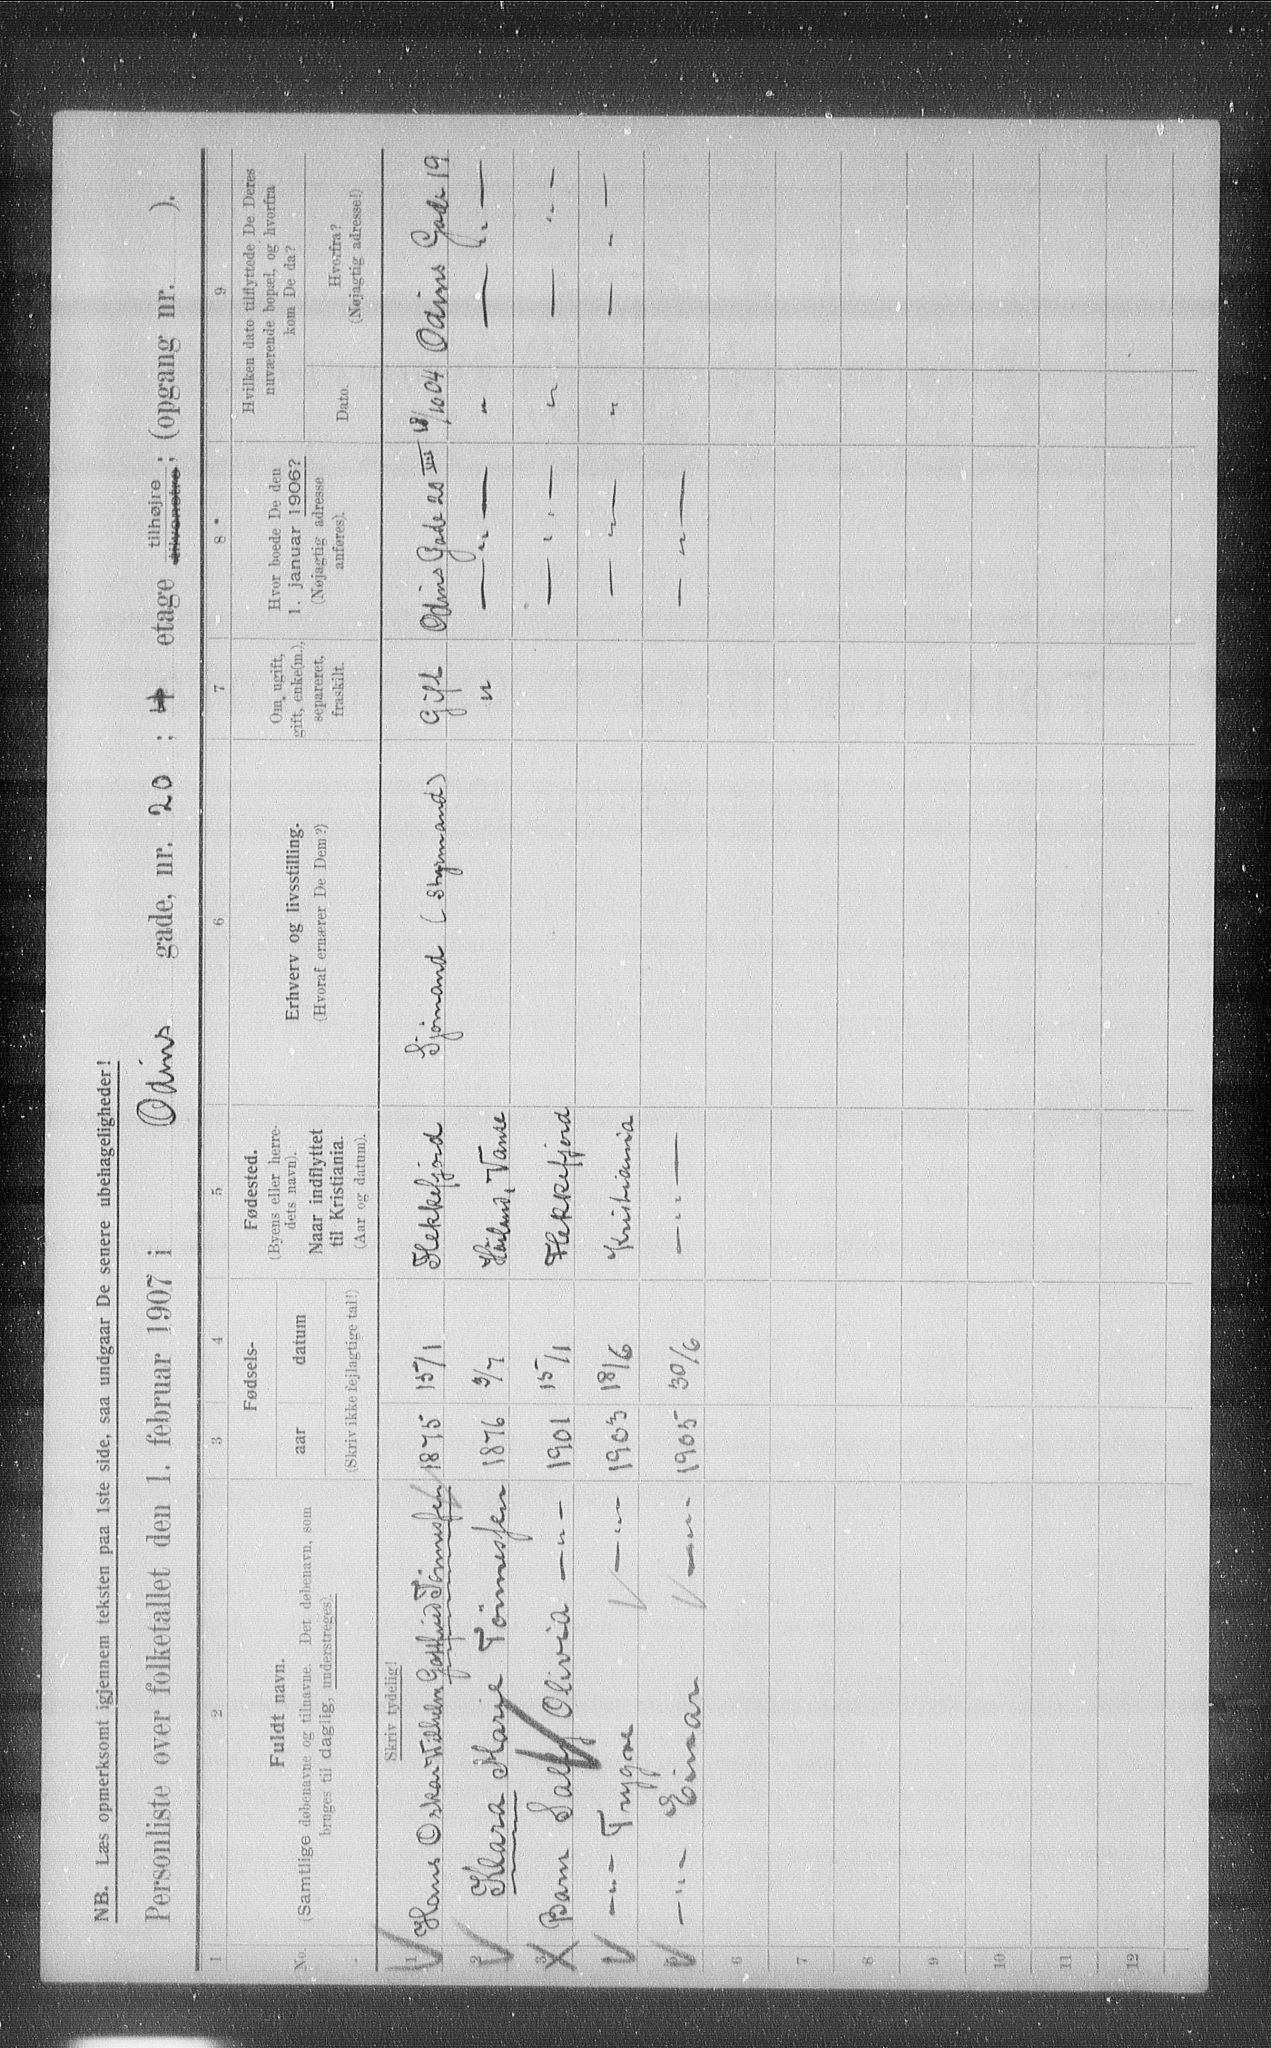 NB. Læs opmerksomt igjennem teksten paa 1ste side, saa undgaar De senere ubehageligheder!
Personliste over folketallet den 1. februar 1907 i Odins gade, nr. 20 ; 4 etage tilhøjre tilvenstre ; (opgang nr. ).
1 2 3 4 5 6 7 8 9
No. Fuldt navn.
(Samtlige døbenavne og tilnavne. Det døbenavn, som
bruges til daglig, understreges).
Fødsels-
aar datum
(Skriv ikke fejlagtige tal!)
Fødested.
(Byens eller herre-
dets navn).
Naar indflyttet
til Kristiania.
(Aar og datum).
Erhverv og livsstilling.
(Hvoraf ernærer De Dem?)
Om ugift,
gift, enke(m.),
separeret,
fraskilt.
Hvor boede De den
1. januar 1906?
(Nøjagtig adresse
anføres).
Hvilken dato tilflyttede De Deres
nuværende bopæl, og hvorfra
kom De da?
Dato.
Hvorfra?
(Nøjagtig adresse!)
Skriv tydelig!
1 Hans Oskar Wilhelm Gottfried Tönnessen 1875 15/1 Flekkefjord Sjömand (Styrmand) Gift Odins Gade 20 IIII 18/10 04 Odins Gade 19
2 Klara Marie Tönnessen 1876 3/7 Vanse " — " — " — " —
3 Barn Sally Olivia — " — 1901 15/1 Flekkefjord — " — " — " —
4 — " — Trygve — " — 1903 18/6 Kristiania — " — " — " —
5 — " — Einar — " — 1905 30/6 — " — — " —
6
7
8
9
10
11
12